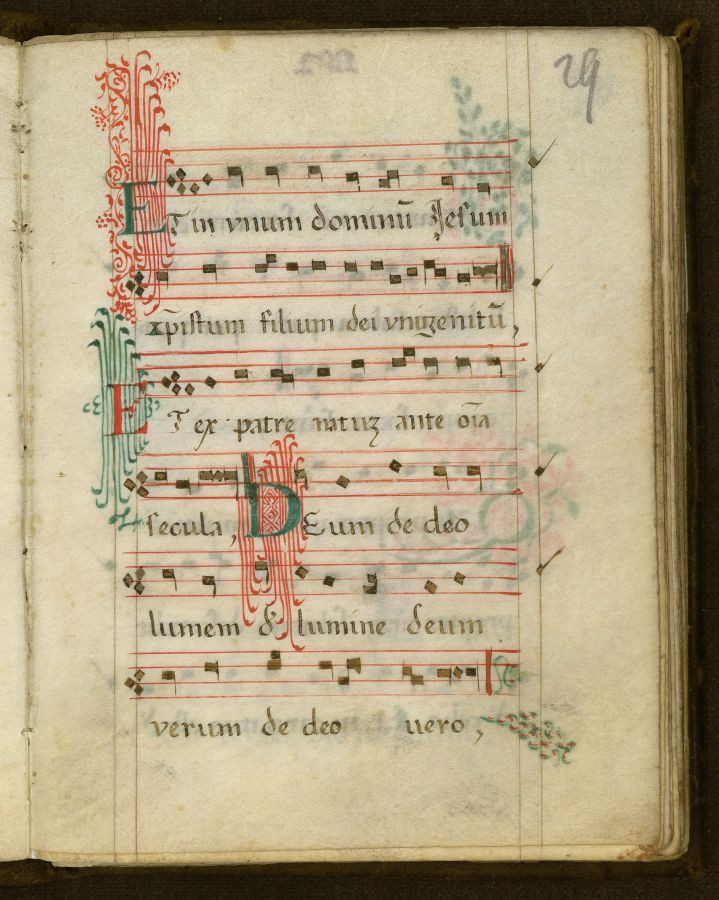 29
ET in vnum dominū Jesum
xp̄istum filium dei vnigenitū,
ET ex patre natuʒ ante oīa
secula, DEum de deo
lumem d' lumine deum
verum de deo uero,